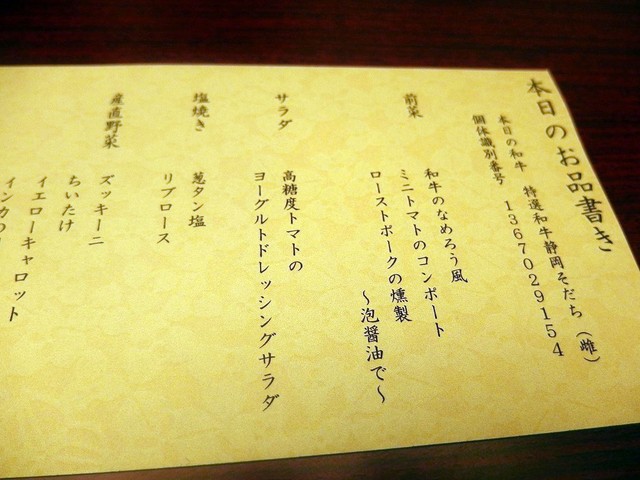 本日のお品書き
本日の和牛 特選和牛静岡そだち（雌）
個体識別番号 1367029154
前菜
和牛のなめろう風
ミニトマトのコンポート
ローストポークの燻製
～泡醤油で～
サラダ
高糖度トマトの
ヨーグルトドレッシングサラダ
塩焼き
葱タン塩
リブロース
産直野菜
ズッキーニ
ちいたけ
イエローキャロット
インカの